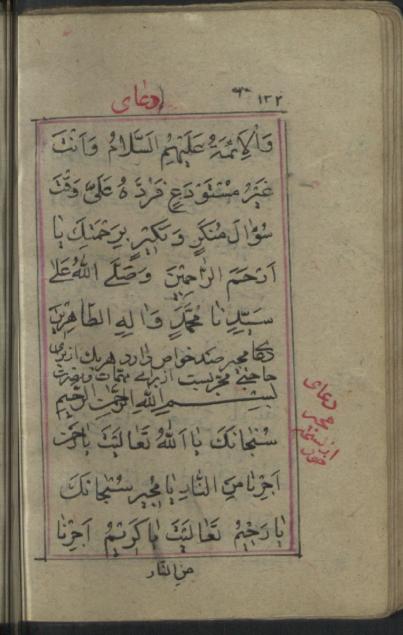 ۱۳۲
دعای
وَالْاَئِمَّةِ عَلَیْهِمُ السَّلَامُ وَاَنْتَ
خَیْرُ مُسْتَوْدَعٍ فَرُدَّهُ عَلَیَّ وَقْتَ
سُؤَالِ مُنْکَرٍ وَنَکِیْرٍ بِرَحْمَتِکَ یَا
اَرْحَمَ الرَّاحِمِیْنَ وَصَلَّی اللّٰهُ عَلٰی
سَیِّدِنَا مُحَمَّدٍ وَاٰلِهِ الطَّاهِرِیْنَ
دعاء مجیر صد خواص دارد هر یک از برای
حاجتی مجربست از برای مهمات
بِسْمِ اللّٰهِ الرَّحْمٰنِ الرَّحِیْمِ
سُبْحَانَکَ یَا اَللّٰهُ تَعَالَیْتَ یَا رَحْمٰنُ
اَجِرْنَا مِنَ النَّارِ یَا مُجِیْرُ سُبْحَانَکَ
یَا رَحِیْمُ تَعَالَیْتَ یَا کَرِیْمُ اَجِرْنَا
من النار
دعای
مجیر